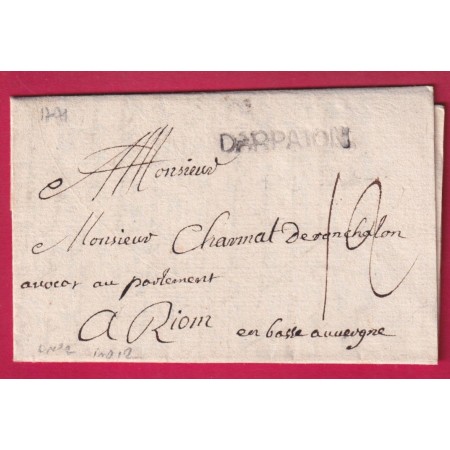 1771
DARPAION
A Monsieur
Monsieur Charmat de ronchalon
avocat au parlement
12
A Riom
en basse auvergne
ind 12